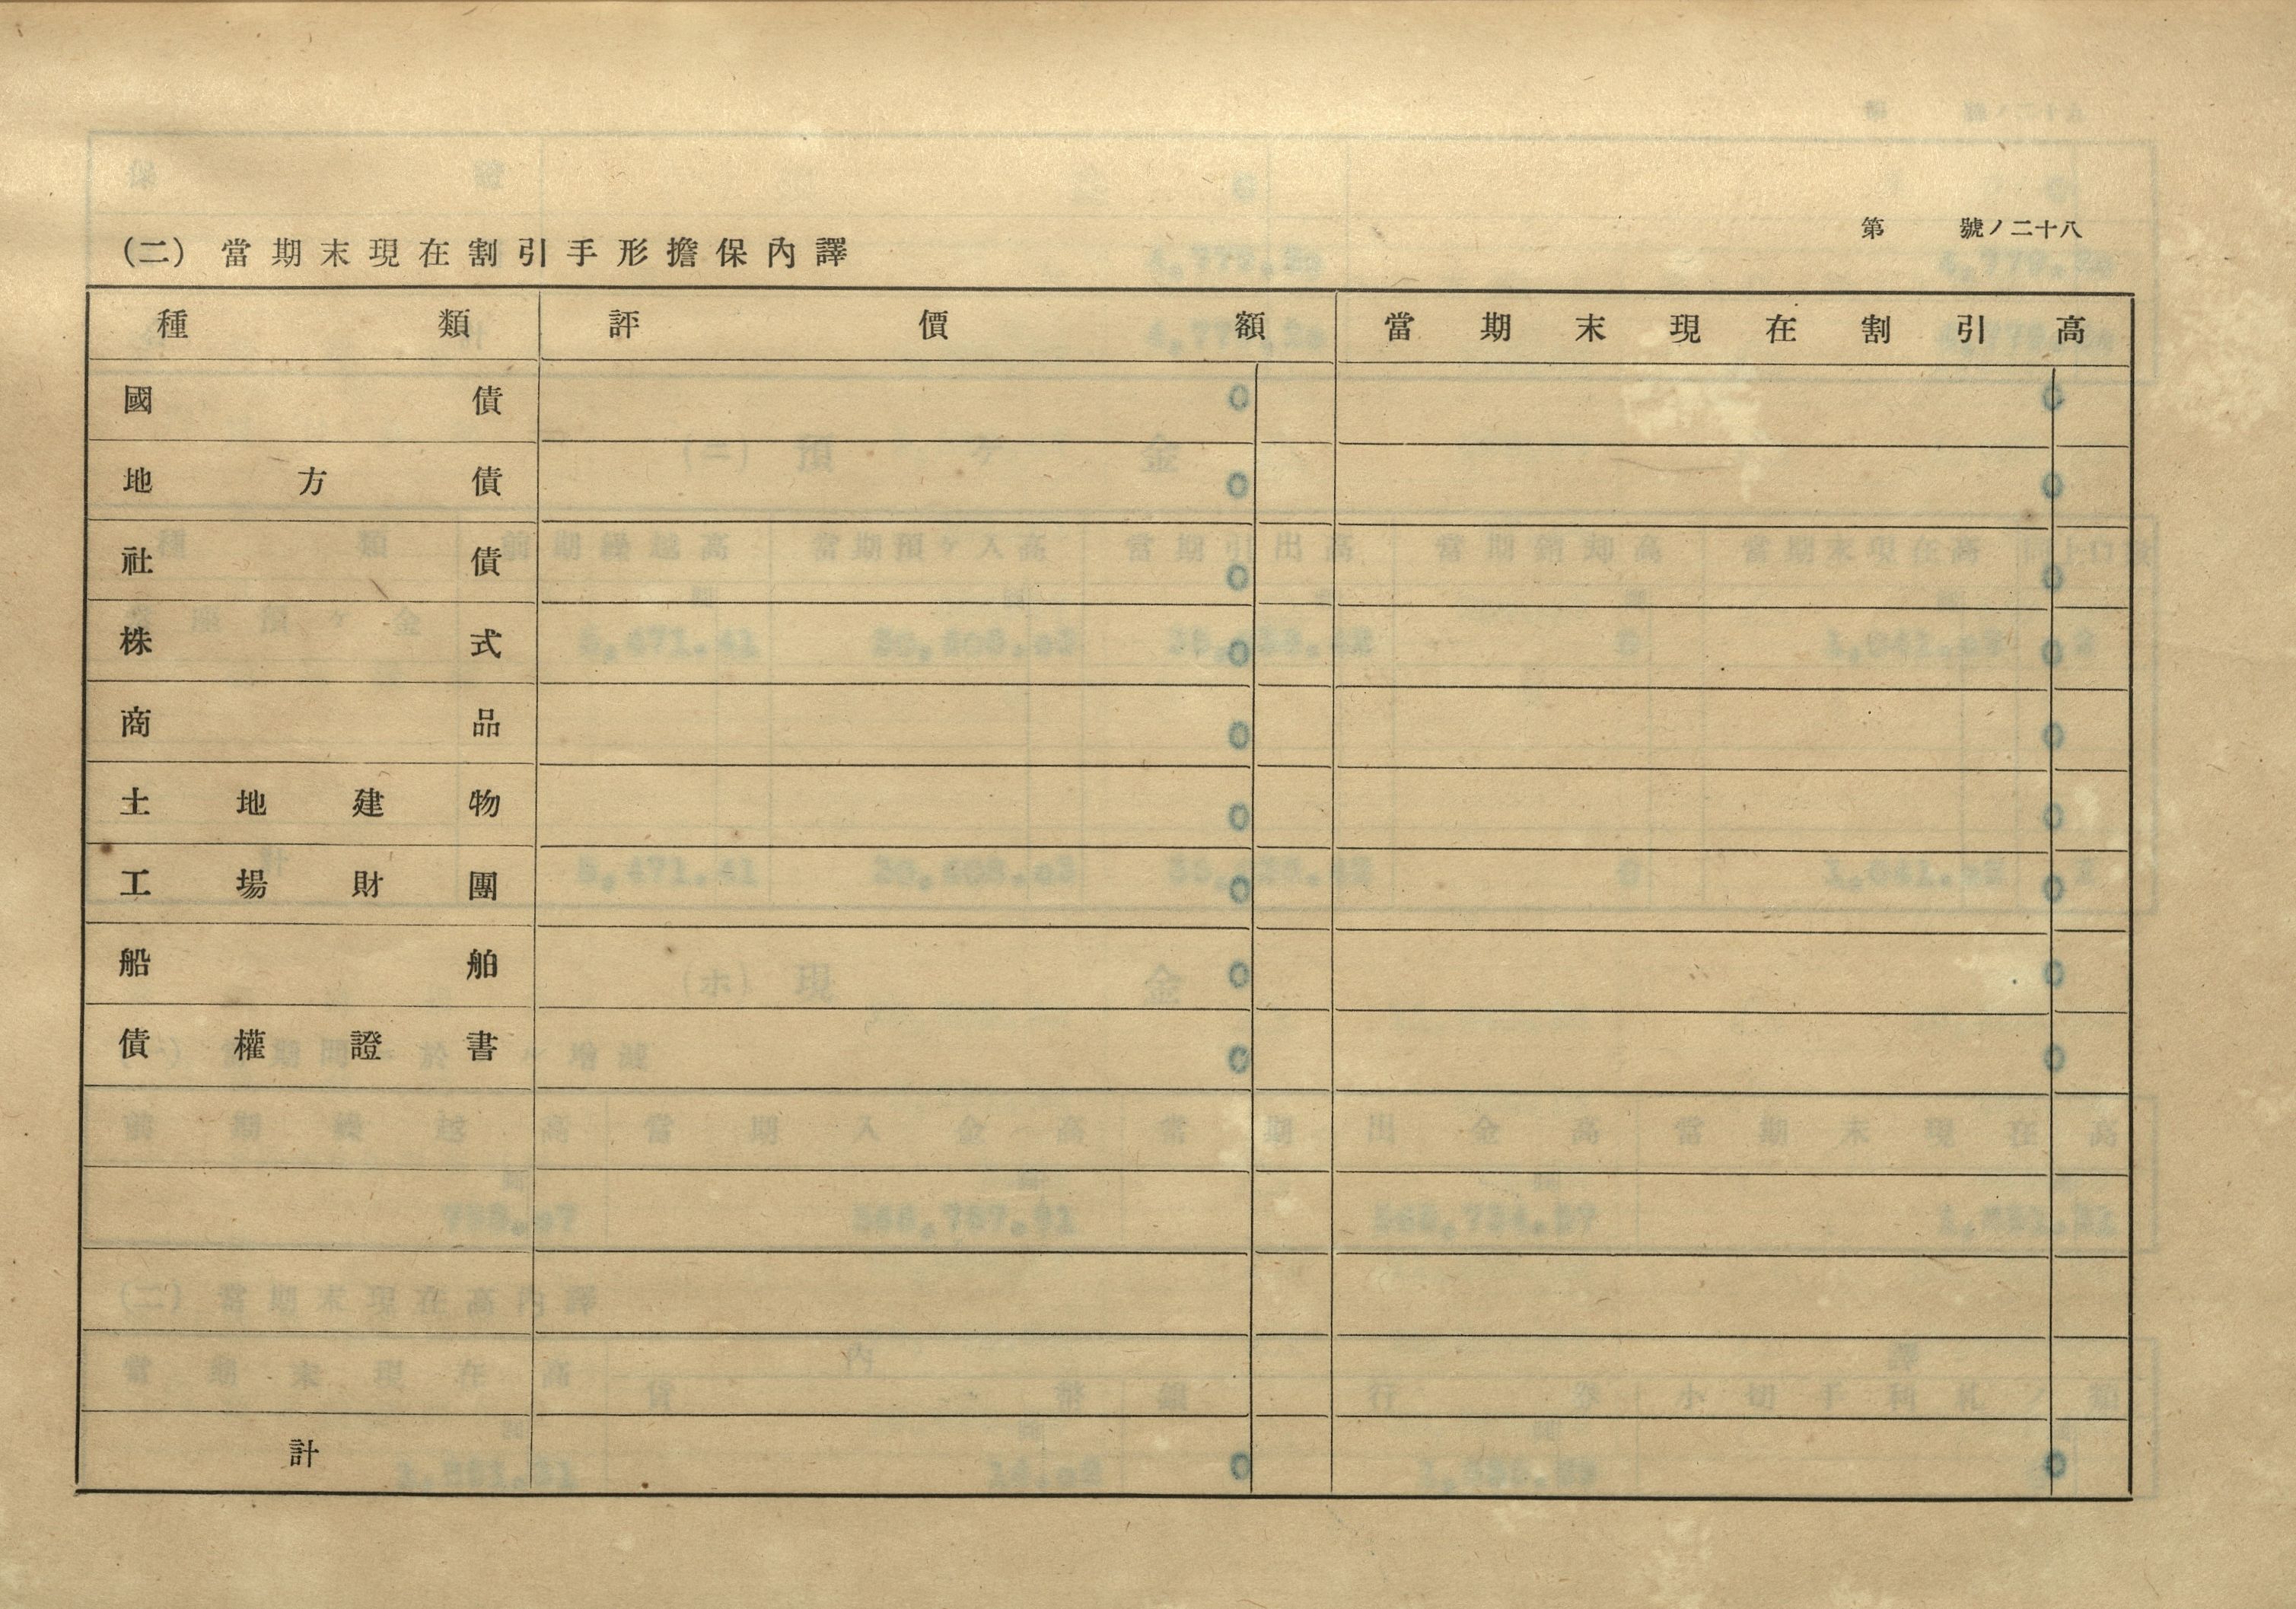 第 號ノ二十八
(二) 當期末現在割引手形擔保內譯
種類 評價額 當期末現在割引高
國債 0 0
地方債 0 0
社債 0 0
株式 0 0
商品 0 0
土地建物 0 0
工場財團 0 0
船舶 0 0
債權證書 0 0
計 0 0